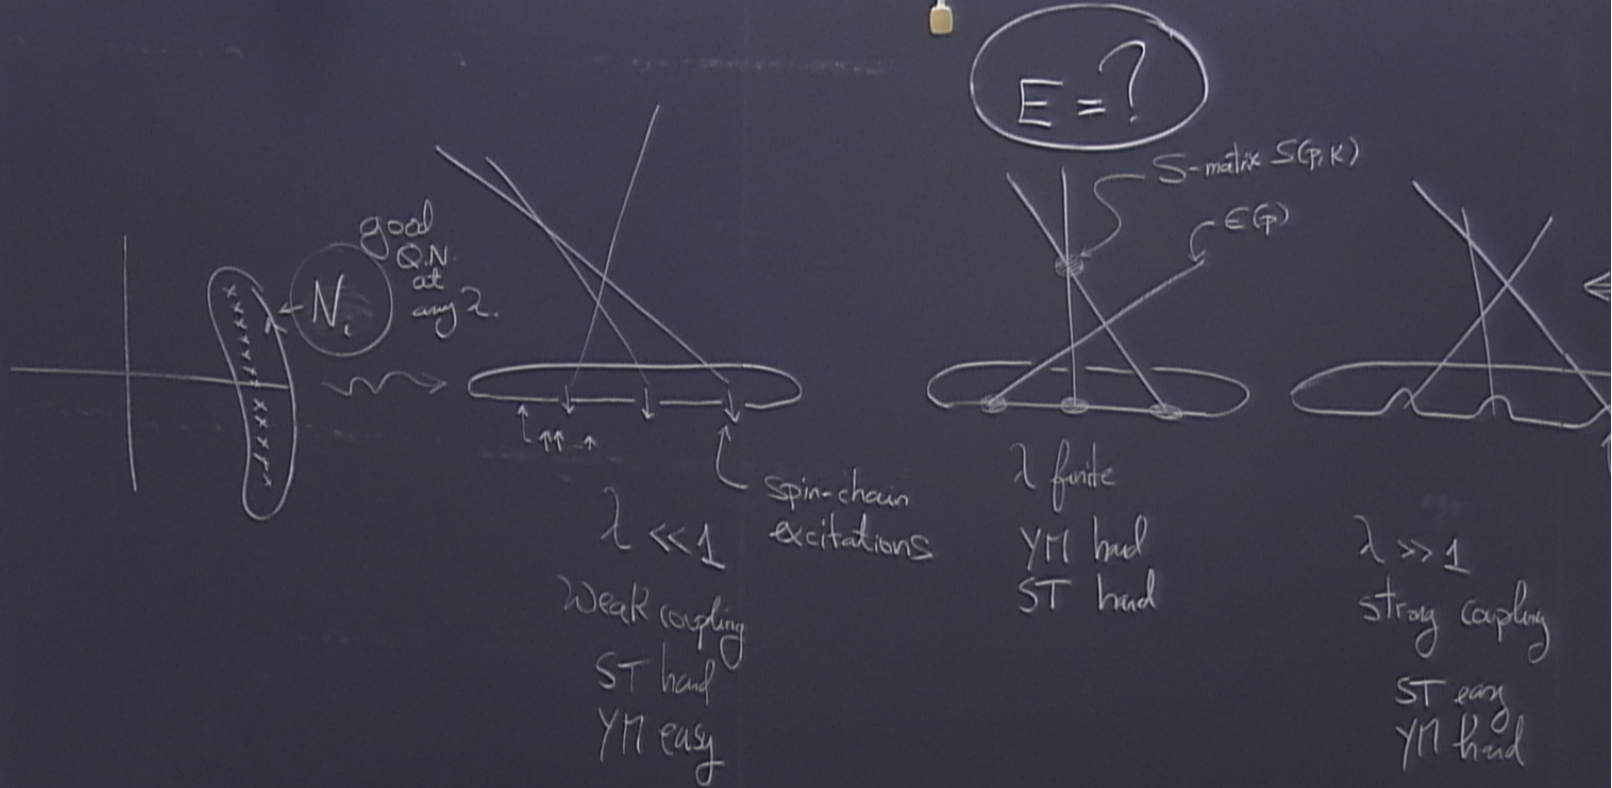 E = ?
S-matrix S(p,k)
ϵ(p)
good
Q.N.
at
any λ.
N
x x x x x x x x x x x x
↑ ↓ ↓ ↓
↑↑ - ↑
spin-chain
excitations
λ << 1
Weak coupling
ST hard
YM easy
λ finite
YM hard
ST hard
λ >> 1
strong coupling
ST easy
YM hard